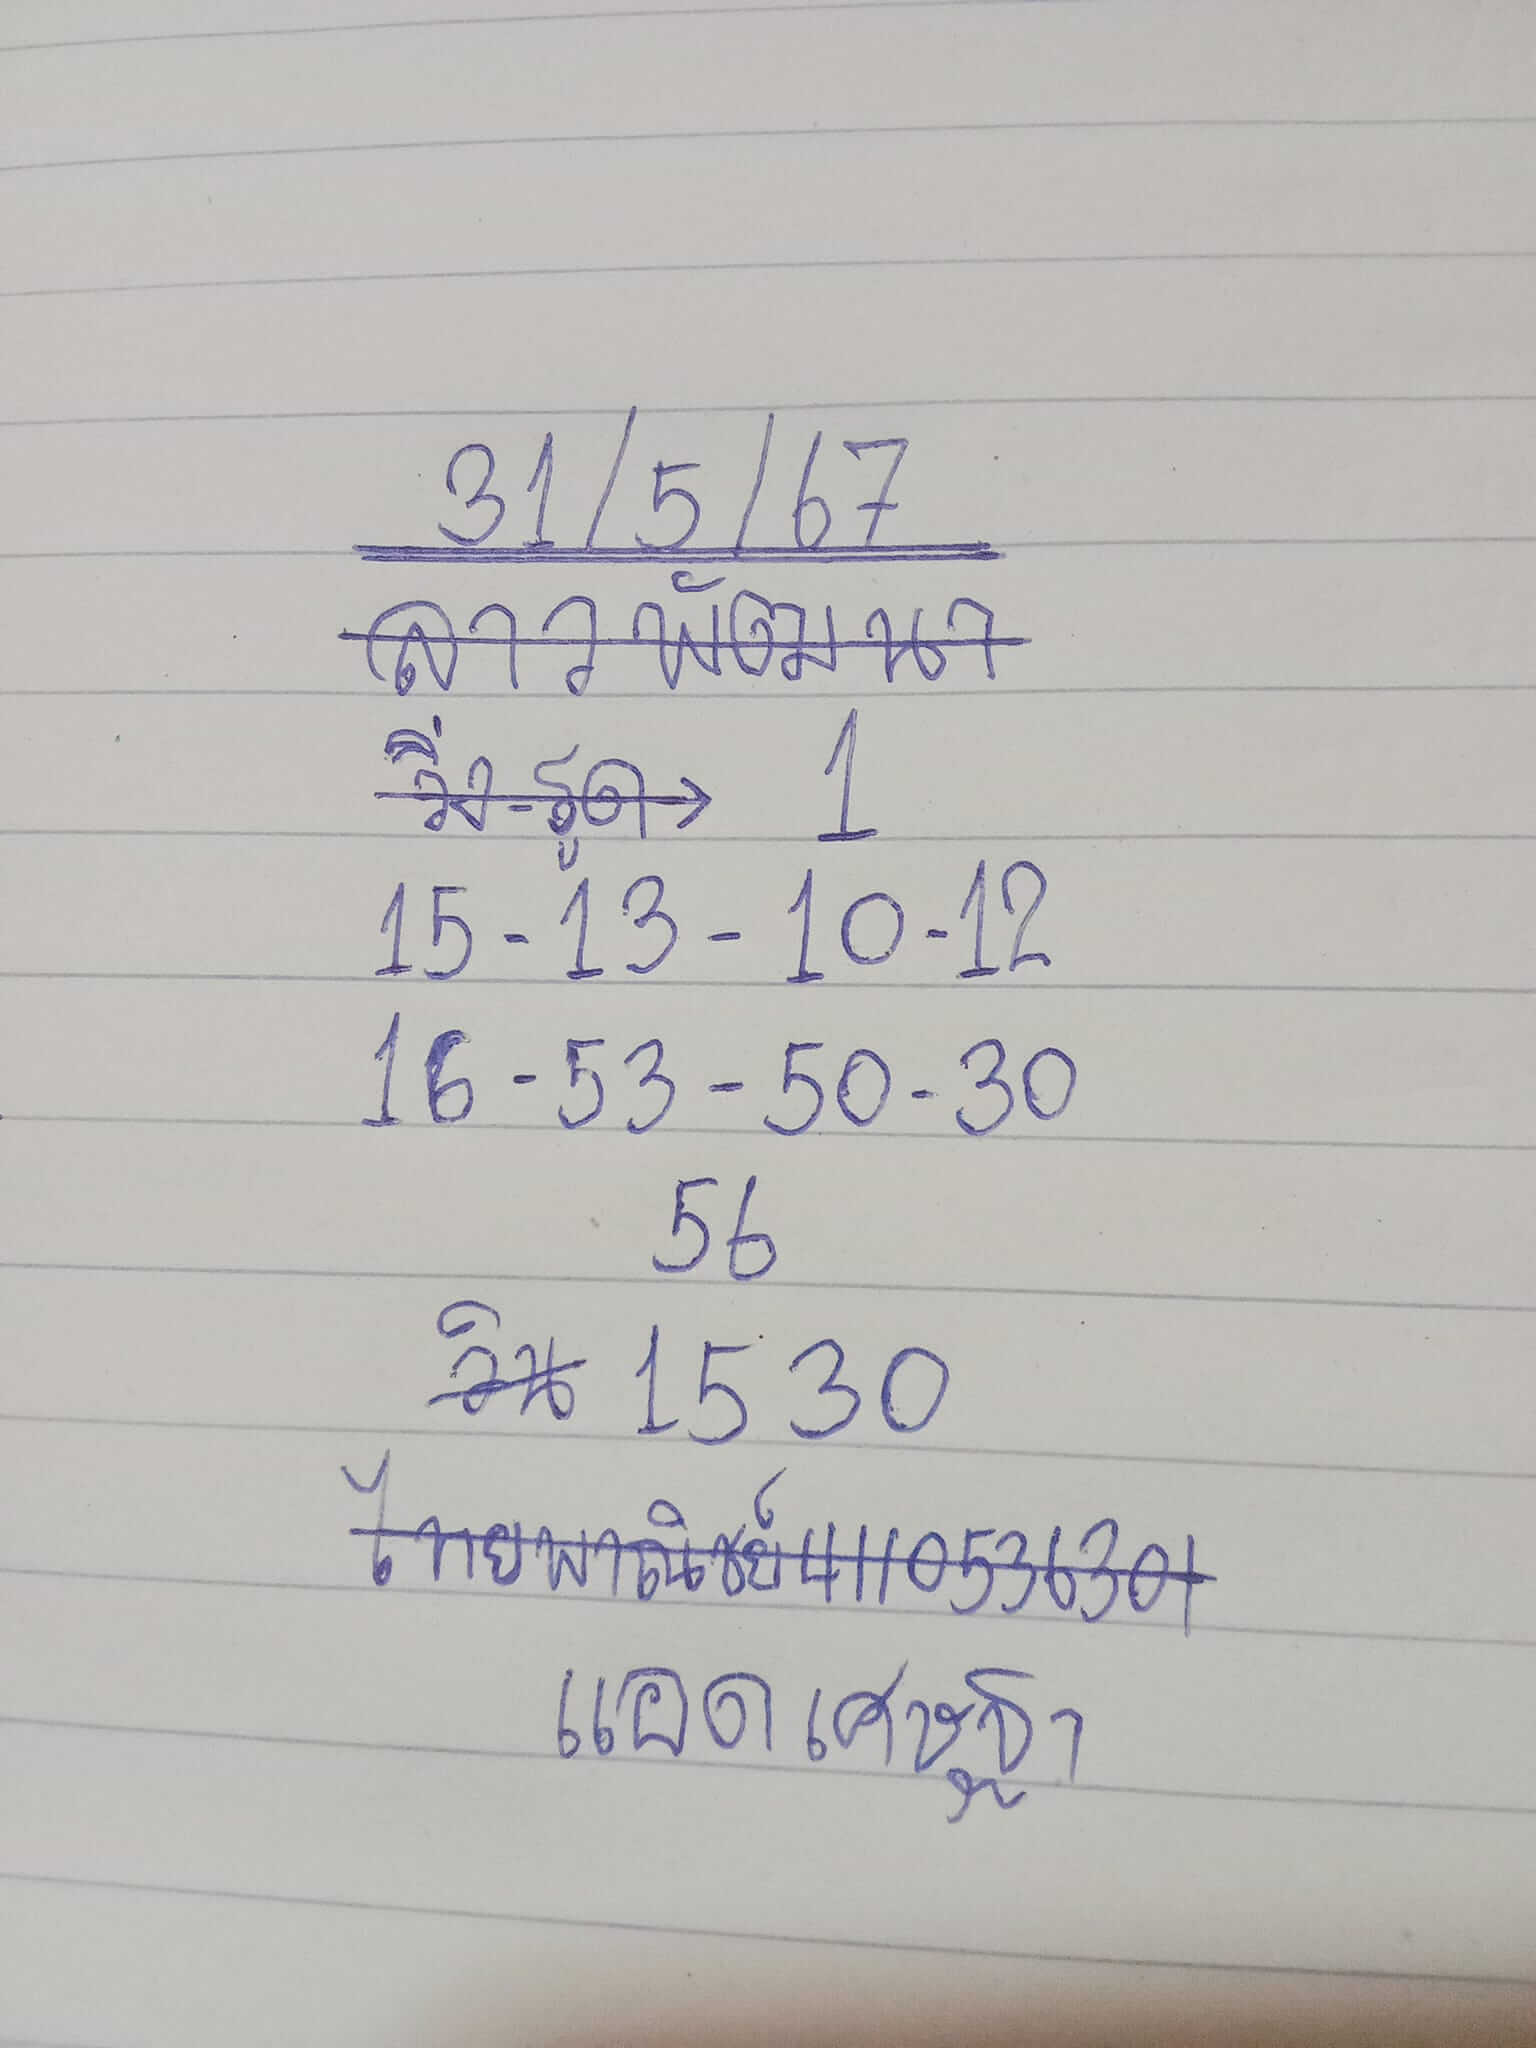 31/5/67
ลาวพัฒนา
วิ่ง-รูด→ 1
15-13-10-12
16-53-50-30
56
วิน 1530
ไทยพาณิชย์4110536301
แอดเศรษฐา